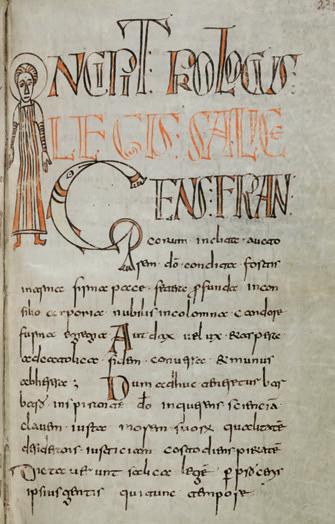 INCIPIT PROLOGUS
LEGIS SALICE
GENS FRAN
corum inclita aucto
rem dō condita fortis
in arma firma pace fetera profunda in con
silio corporia nobilis incolomna candore
forma egregia Audax uelux et aspera
ad catolica fidem conuersa et munus
ab herese; Dum adhuc teneretur bar
bara inspirante dō inquerens sciencia
clauem iuxta morem suorum qualitate
desiderans iusticiam costodiens pietate
Dictauerunt salica lege per proceris
ipsius gentis qui tunc tempore